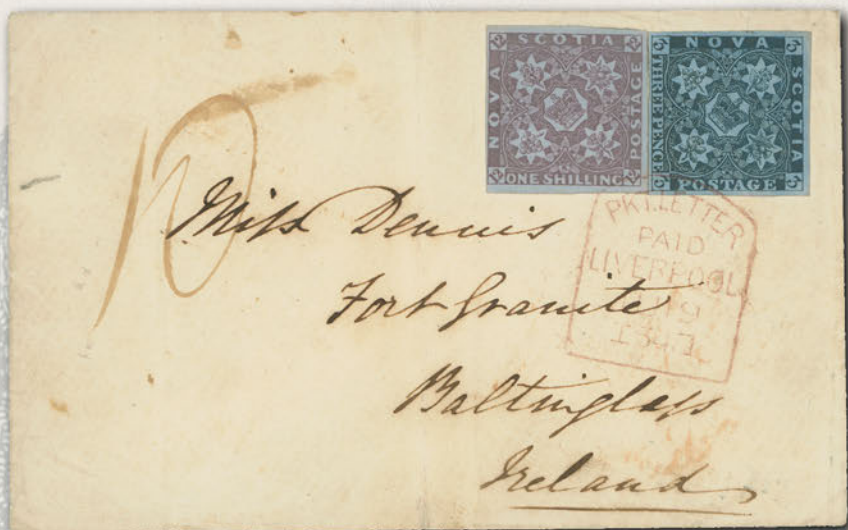 NOVA SCOTIA POSTAGE ONE SHILLING
NOVA SCOTIA THREE PENCE POSTAGE
PKT. LETTER
PAID
LIVERPOOL
Miss Dennis
Fort Granite
Baltinglass
Ireland